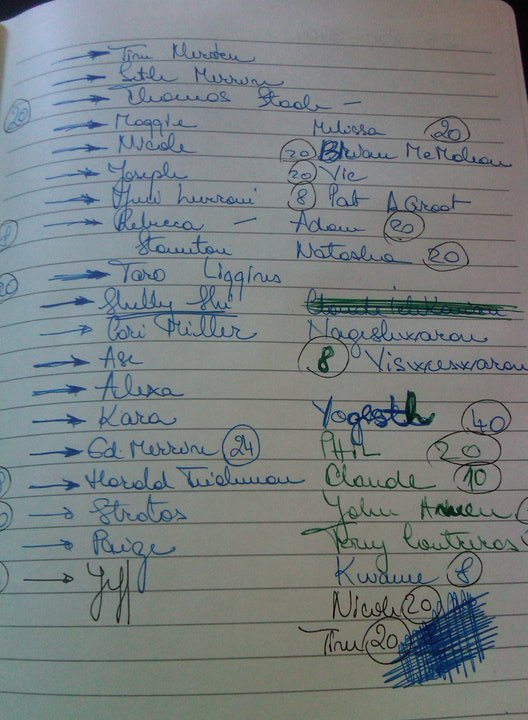 Tim
Seth Merrow
Thomas Stade –
20
Maggie Melissa 20
Nicole 20 Brian McMahon
Joseph 20 Vic
8 Pat A Groot
Rebecca – Adam 20
8
Staunton Natasha 20
Tara Liggins
20
Shelby Shi
Cori Miller Nageshwaran
Ase 8
Alexa
Kara Yogesh 40
Ed Merrow 24 PHIL 20
Harold Claude 10
Stratos John
Paige Terry Contreras
Jeff Kwame 8
Nicole 20
Tim 20